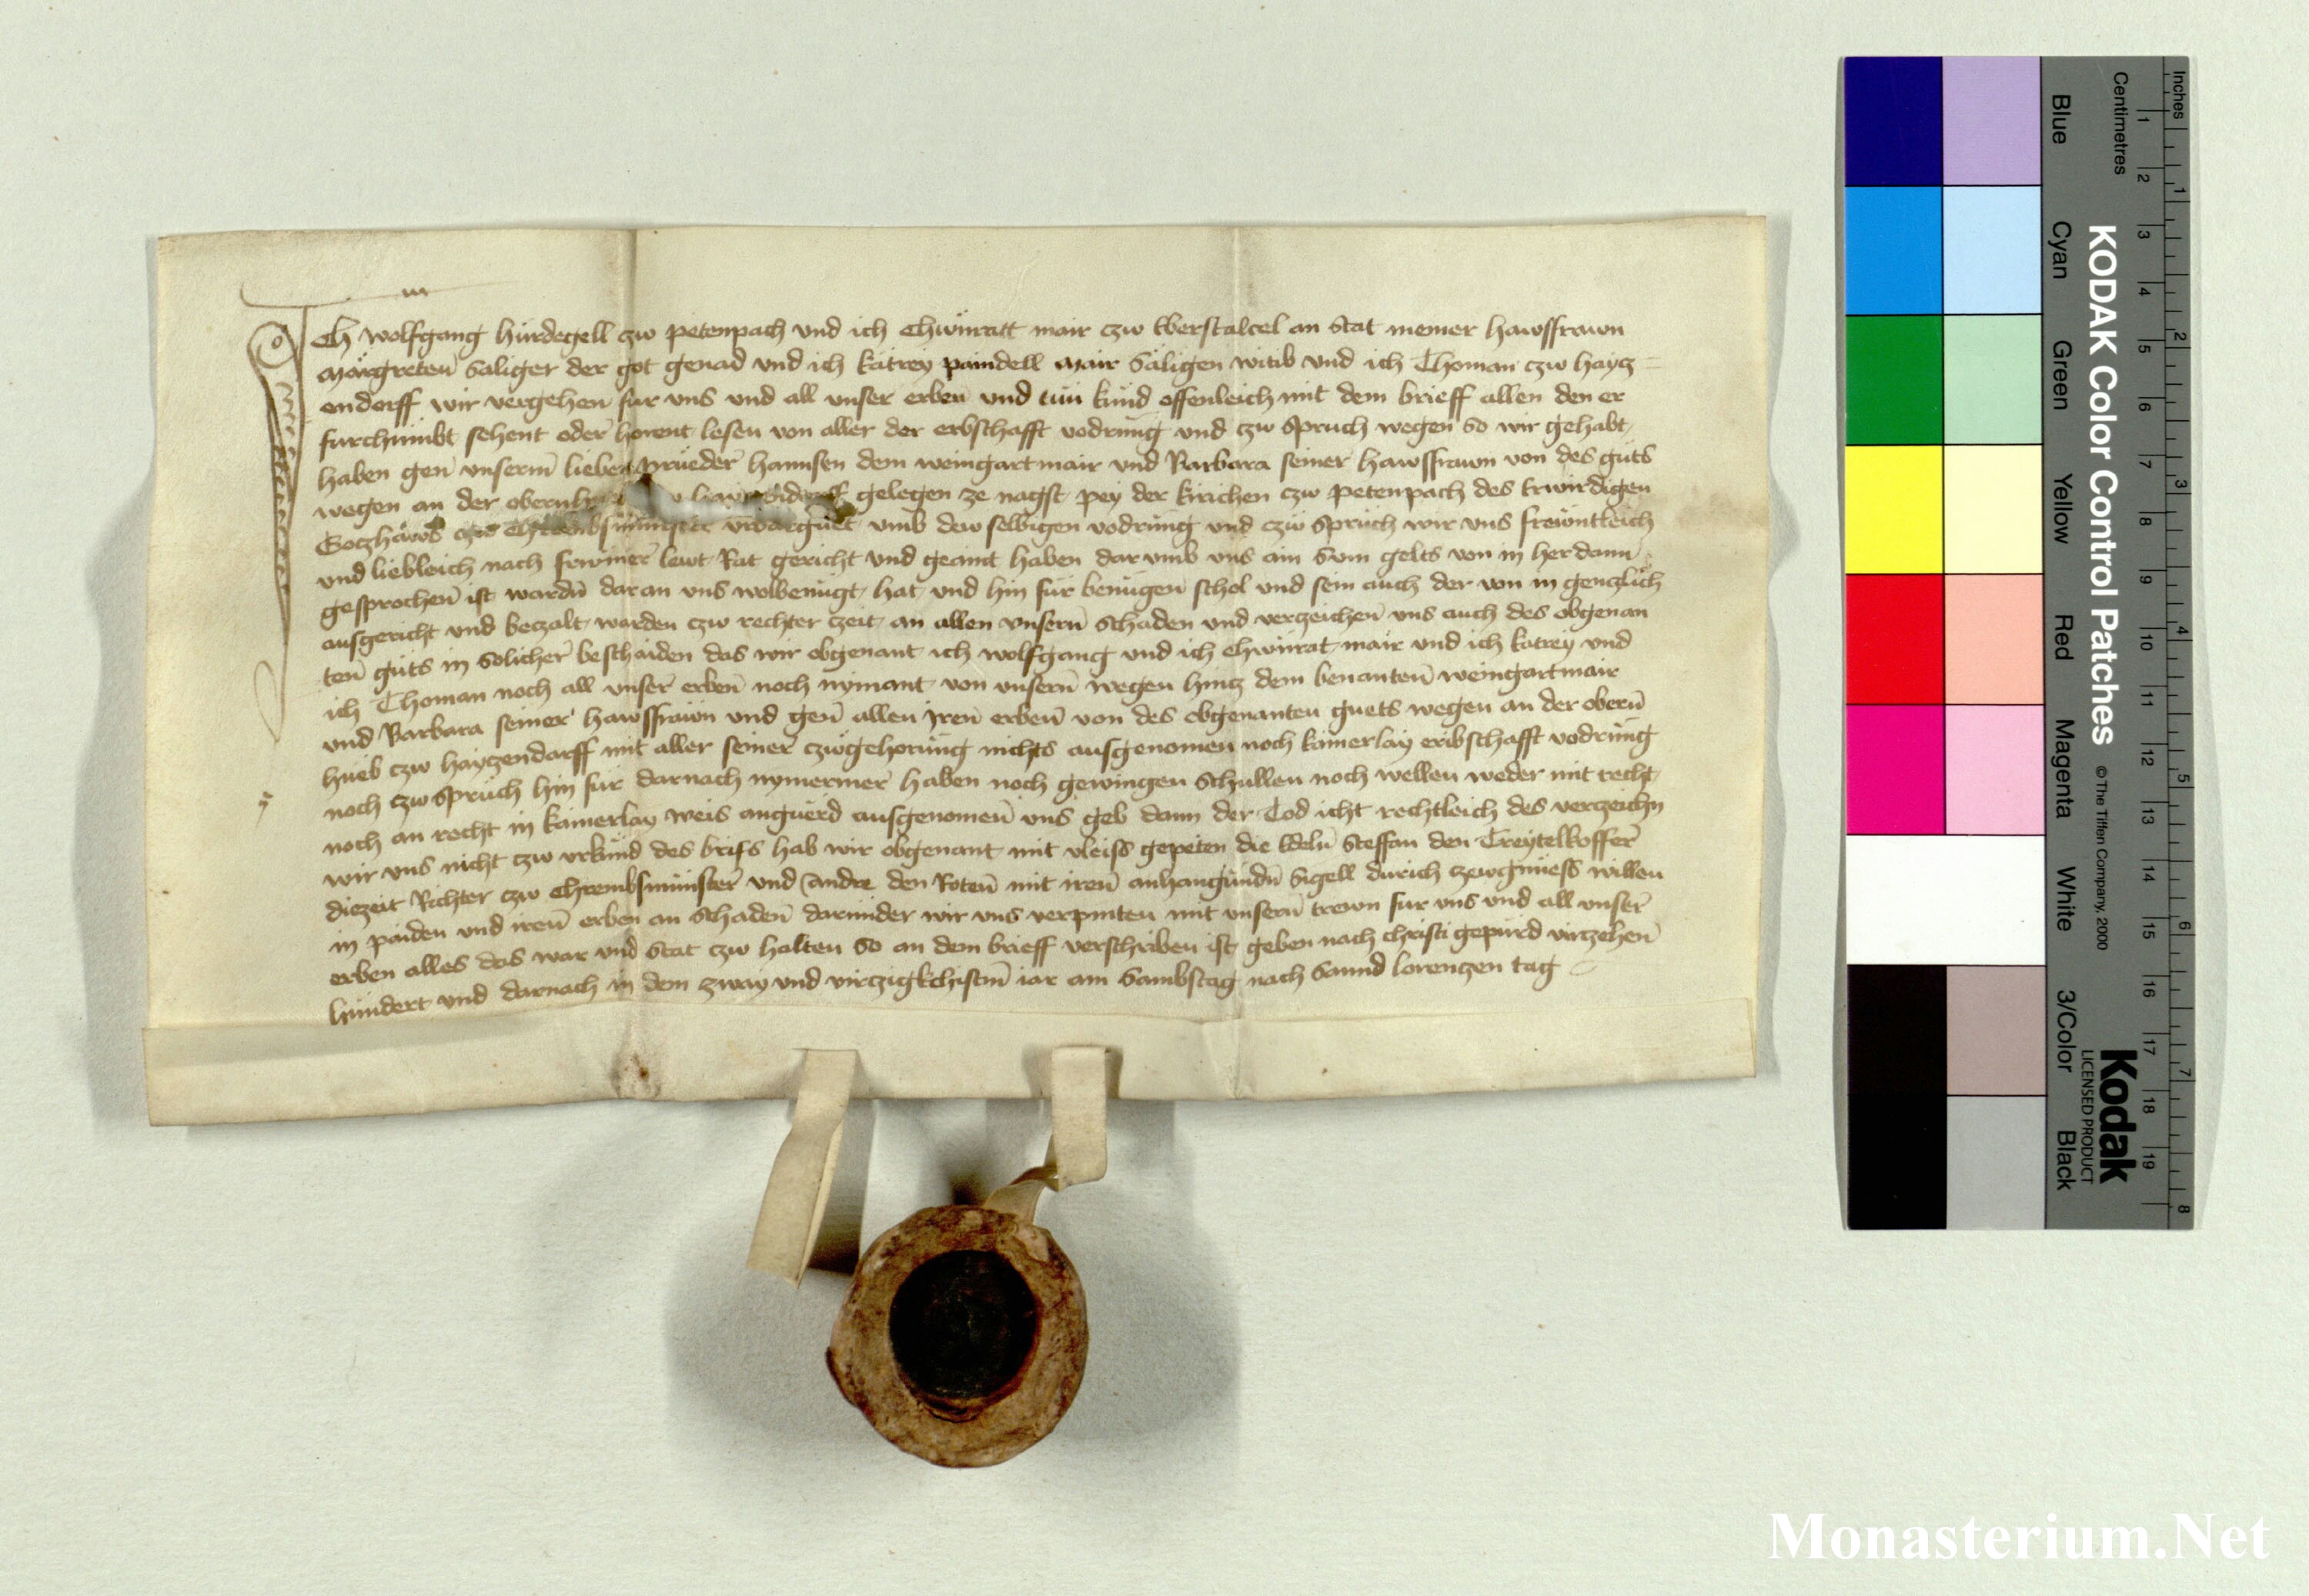 Ich wolfgang hürdegell czw petenpach und ich Chwnratt mair czw Eberstalcel an stat meiner hawsfrawn
Margreten saliger der got genad und ich katrey paindell mair säligen witib und ich Thoman czw haycz
endorff wir vergehen für uns und all unser erben und tün kund offenleich mit dem brieff allen den er
furchümbt sehent oder horent lesen von aller der erbschafft vodrung und czw spruch wegen so wir gehabt
haben gen unserm lieben prueder hannsen dem weingartmair und Barbara seiner hawsfrawn von des guts
wegen an der obern gelegen ze nagst pey der kirichen czw petenpach des Erwirdigen
Goczhaws czw Chrembsmünster urbarguet umb dew selbigen vodrung und czw spruch wir uns frewntleich
und liebleich nach frwmer lewt Rat gericht und geaint haben dar umb uns ain Sum gelts von in her dann
gesprochen ist wardn daran uns wolbenügt hat und hin für benügen schol und sein auch der von in genczlich
ausgericht und beczalt warden czw rechter czeit an allen unsern schaden und verczeichen uns auch des obgenan
ten guts in solicher beschaiden das wir obgenant ich wolfgang und ich Chwnrat mair und ich katrey und
ich Thoman noch all unser erben noch nymant von unsern wegen hincz dem benanten weingartmair
und Barbara seiner hawsfrawn und gen allen iren erben von des obgenanten guets wegen an der obern
hueb czw hayczendarff mit aller seiner czwgehorung nichts ausgenomen noch kainerlay eribschafft vodrung
noch czw spruch hin für darnach nymermer haben noch gewingen schullen noch wellen weder mit recht
noch an recht in kainerlay weis anguerd ausgenomen uns geb dann der Tod icht rechtleich des verczeichn
wir uns nicht czw urkund des brifs hab wir obgenant mit vleiss gepeten die Edeln Steffan den Treytelkoffer
diezeit Richter czw Chrembsmünster und Andre den Roten mit iren anhangunden Sigell durich czewgnuess willen
in paiden und iren erben an schaden darunder wir uns verpinten mit unsern trewn fur uns und all unser
erben alles das war und stat czw halten so an dem brieff verschriben ist geben nach christi gepurd virczehen
hundert und darnach in dem zway und virczigkchistem iar am Sambstag nach Sannd lorenczen tag
Inches
Centimetres
1 2 3 4 5 6 7 8 9 10 11 12 13 14 15 16 17 18 19
1 2 3 4 5 6 7 8
KODAK Color Control Patches
© The Tiffen Company, 2000
Kodak
LICENSED PRODUCT
Blue
Cyan
Green
Yellow
Red
Magenta
White
3/Color
Black
Monasterium.Net